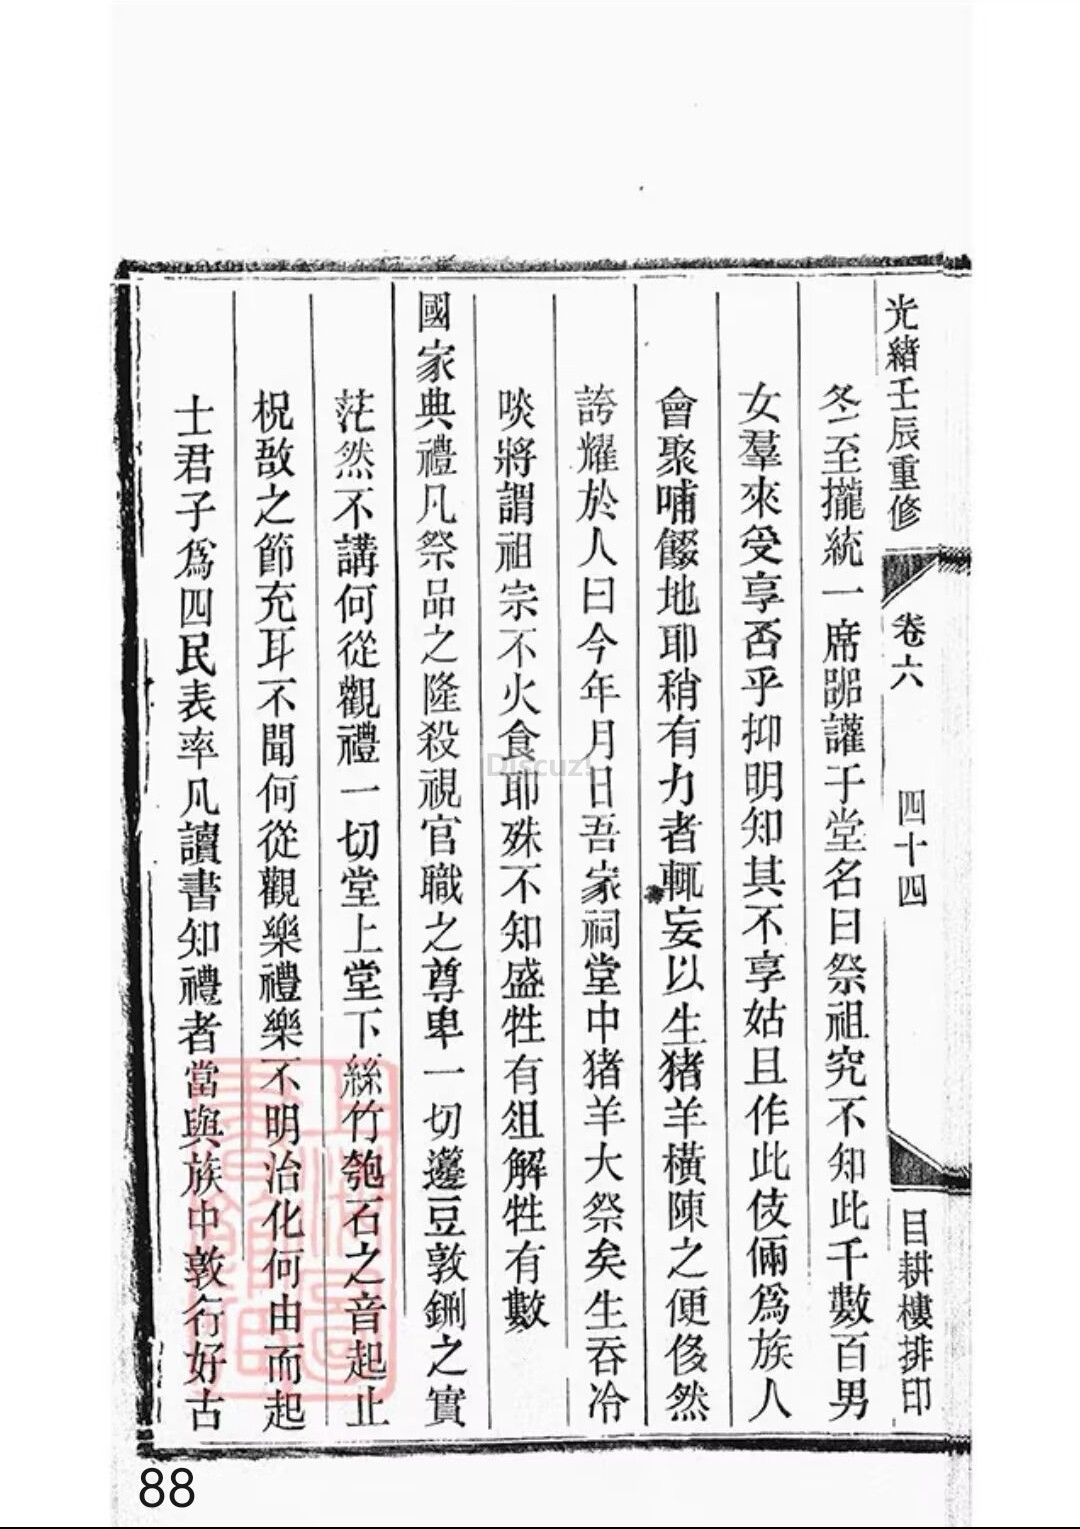 光緒壬辰重修
卷六
四十四
目耕樓排印
冬至攏統一席跽讙于堂名曰祭祖究不知此千數百男
女羣來受享否乎抑明知其不享姑且作此伎倆爲族人
會聚哺餟地耶稍有力者輒妄以生猪羊橫陳之便侈然
誇耀於人曰今年月日吾家祠堂中猪羊大祭矣生吞冷
啖將謂祖宗不火食耶殊不知盛牲有俎解牲有數
國家典禮凡祭品之隆殺視官職之尊卑一切籩豆敦鉶之實
茫然不講何從觀禮一切堂上堂下絲竹匏石之音起止
柷敔之節充耳不聞何從觀樂禮樂不明治化何由而起
士君子爲四民表率凡讀書知禮者當與族中敦行好古
上海圖書館藏
Discuz!
88